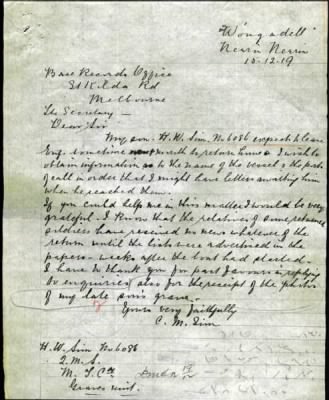 "Wongadell"
Nerrin Nerrin
10-12-19
Base Records Office
St Kilda Rd
Melbourne
The Secretary —
Dear Sir
My son H. W. Sim No 6086 expects to leave
Eng. sometime with his return home & I wish to
obtain information as to the name of the vessel & the ports
of call in order that I might have letters awaiting him
when he reached them.
If you could help me in this matter I would be very
grateful. I know that the relatives of some returned
soldiers have received no news whatever of the
return until the lists were advertised in the
papers - weeks after the boat had started.
I have to thank you for past favours in replying
to enquiries, also for the receipt of the photos
of my late son's grave.
Yours very faithfully
C. M. Sim
H. W. Sim No 6086
Q. M. S.
Graves unit.